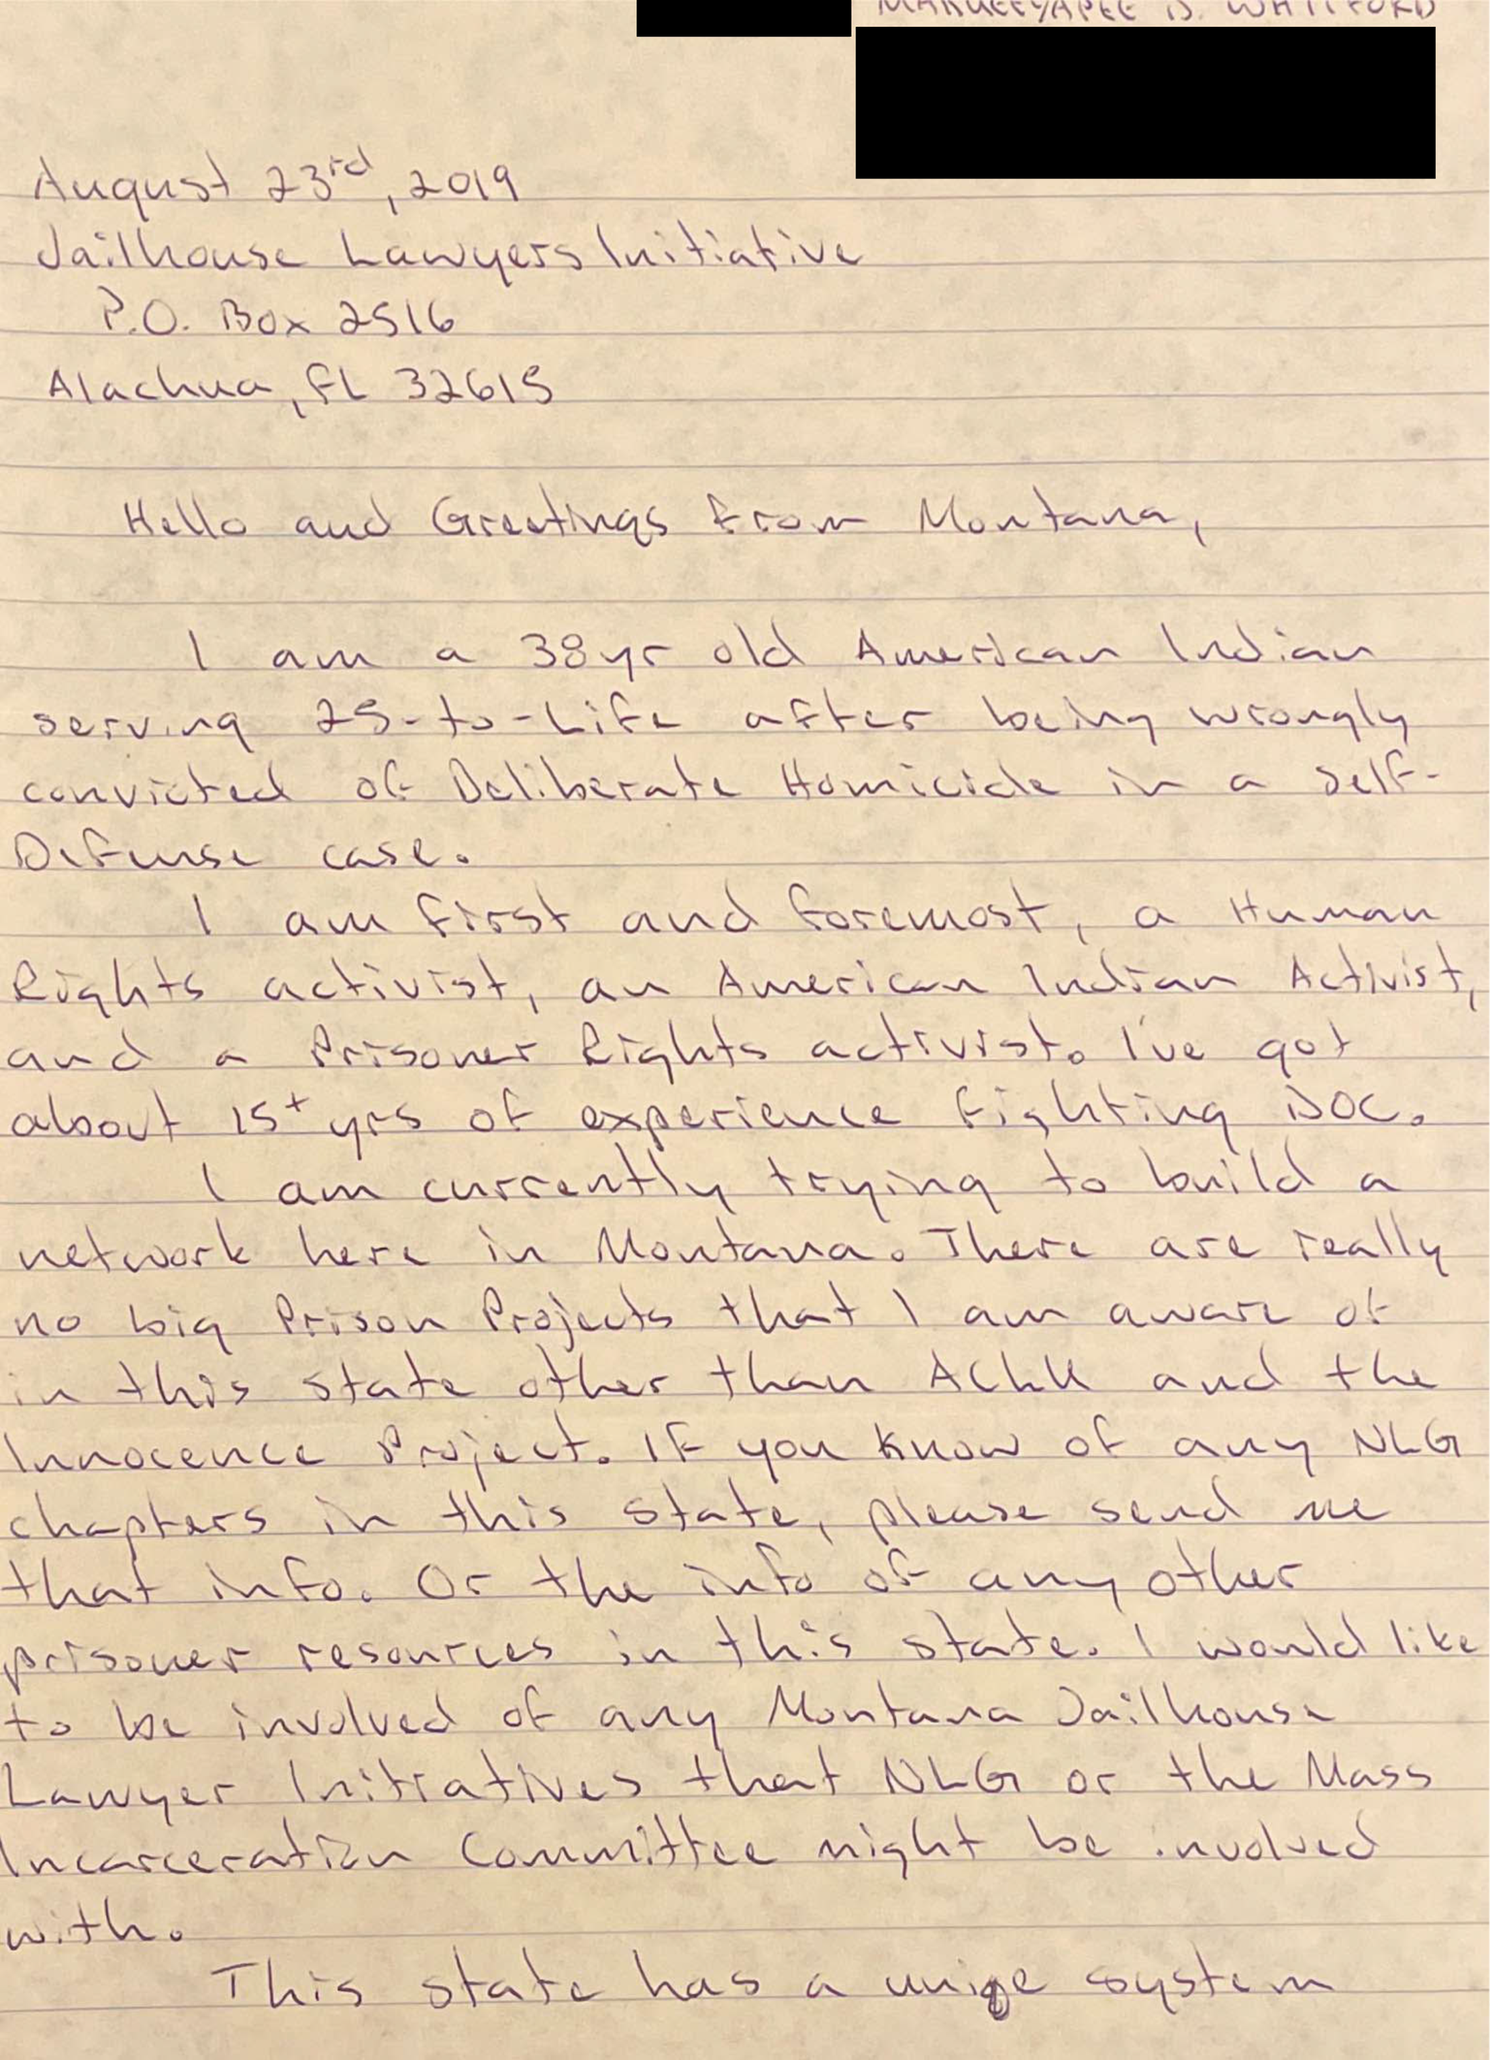 WHITFORD
August 23rd, 2019
Jailhouse Lawyers Initiative
P.O. Box 2516
Alachua, FL 32615
Hello and Greetings from Montana,
I am a 38yr old American Indian
serving 25-to-Life after being wrongly
convicted of Deliberate Homicide in a Self-
Defense case.
I am first and foremost, a Human
Rights activist, an American Indian Activist,
and a Prisoner Rights activist. I've got
about 15+ yrs of experience fighting DOC.
I am currently trying to build a
network here in Montana. There are really
no big Prison Projects that I am aware of
in this state other than ACLU and the
Innocence Project. If you know of any NLG
chapters in this state, please send me
that info. Or the info of any other
prisoner resources in this state. I would like
to be involved of any Montana Jailhouse
Lawyer Initiatives that NLG or the Mass
Incarceration Committee might be involved
with.
This state has a uniqe system